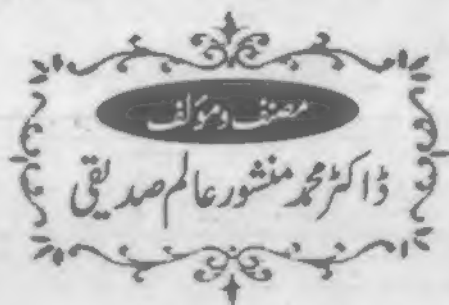 مصنف و مؤلف
ڈاکٹر محمد منشور عالم صدیقی